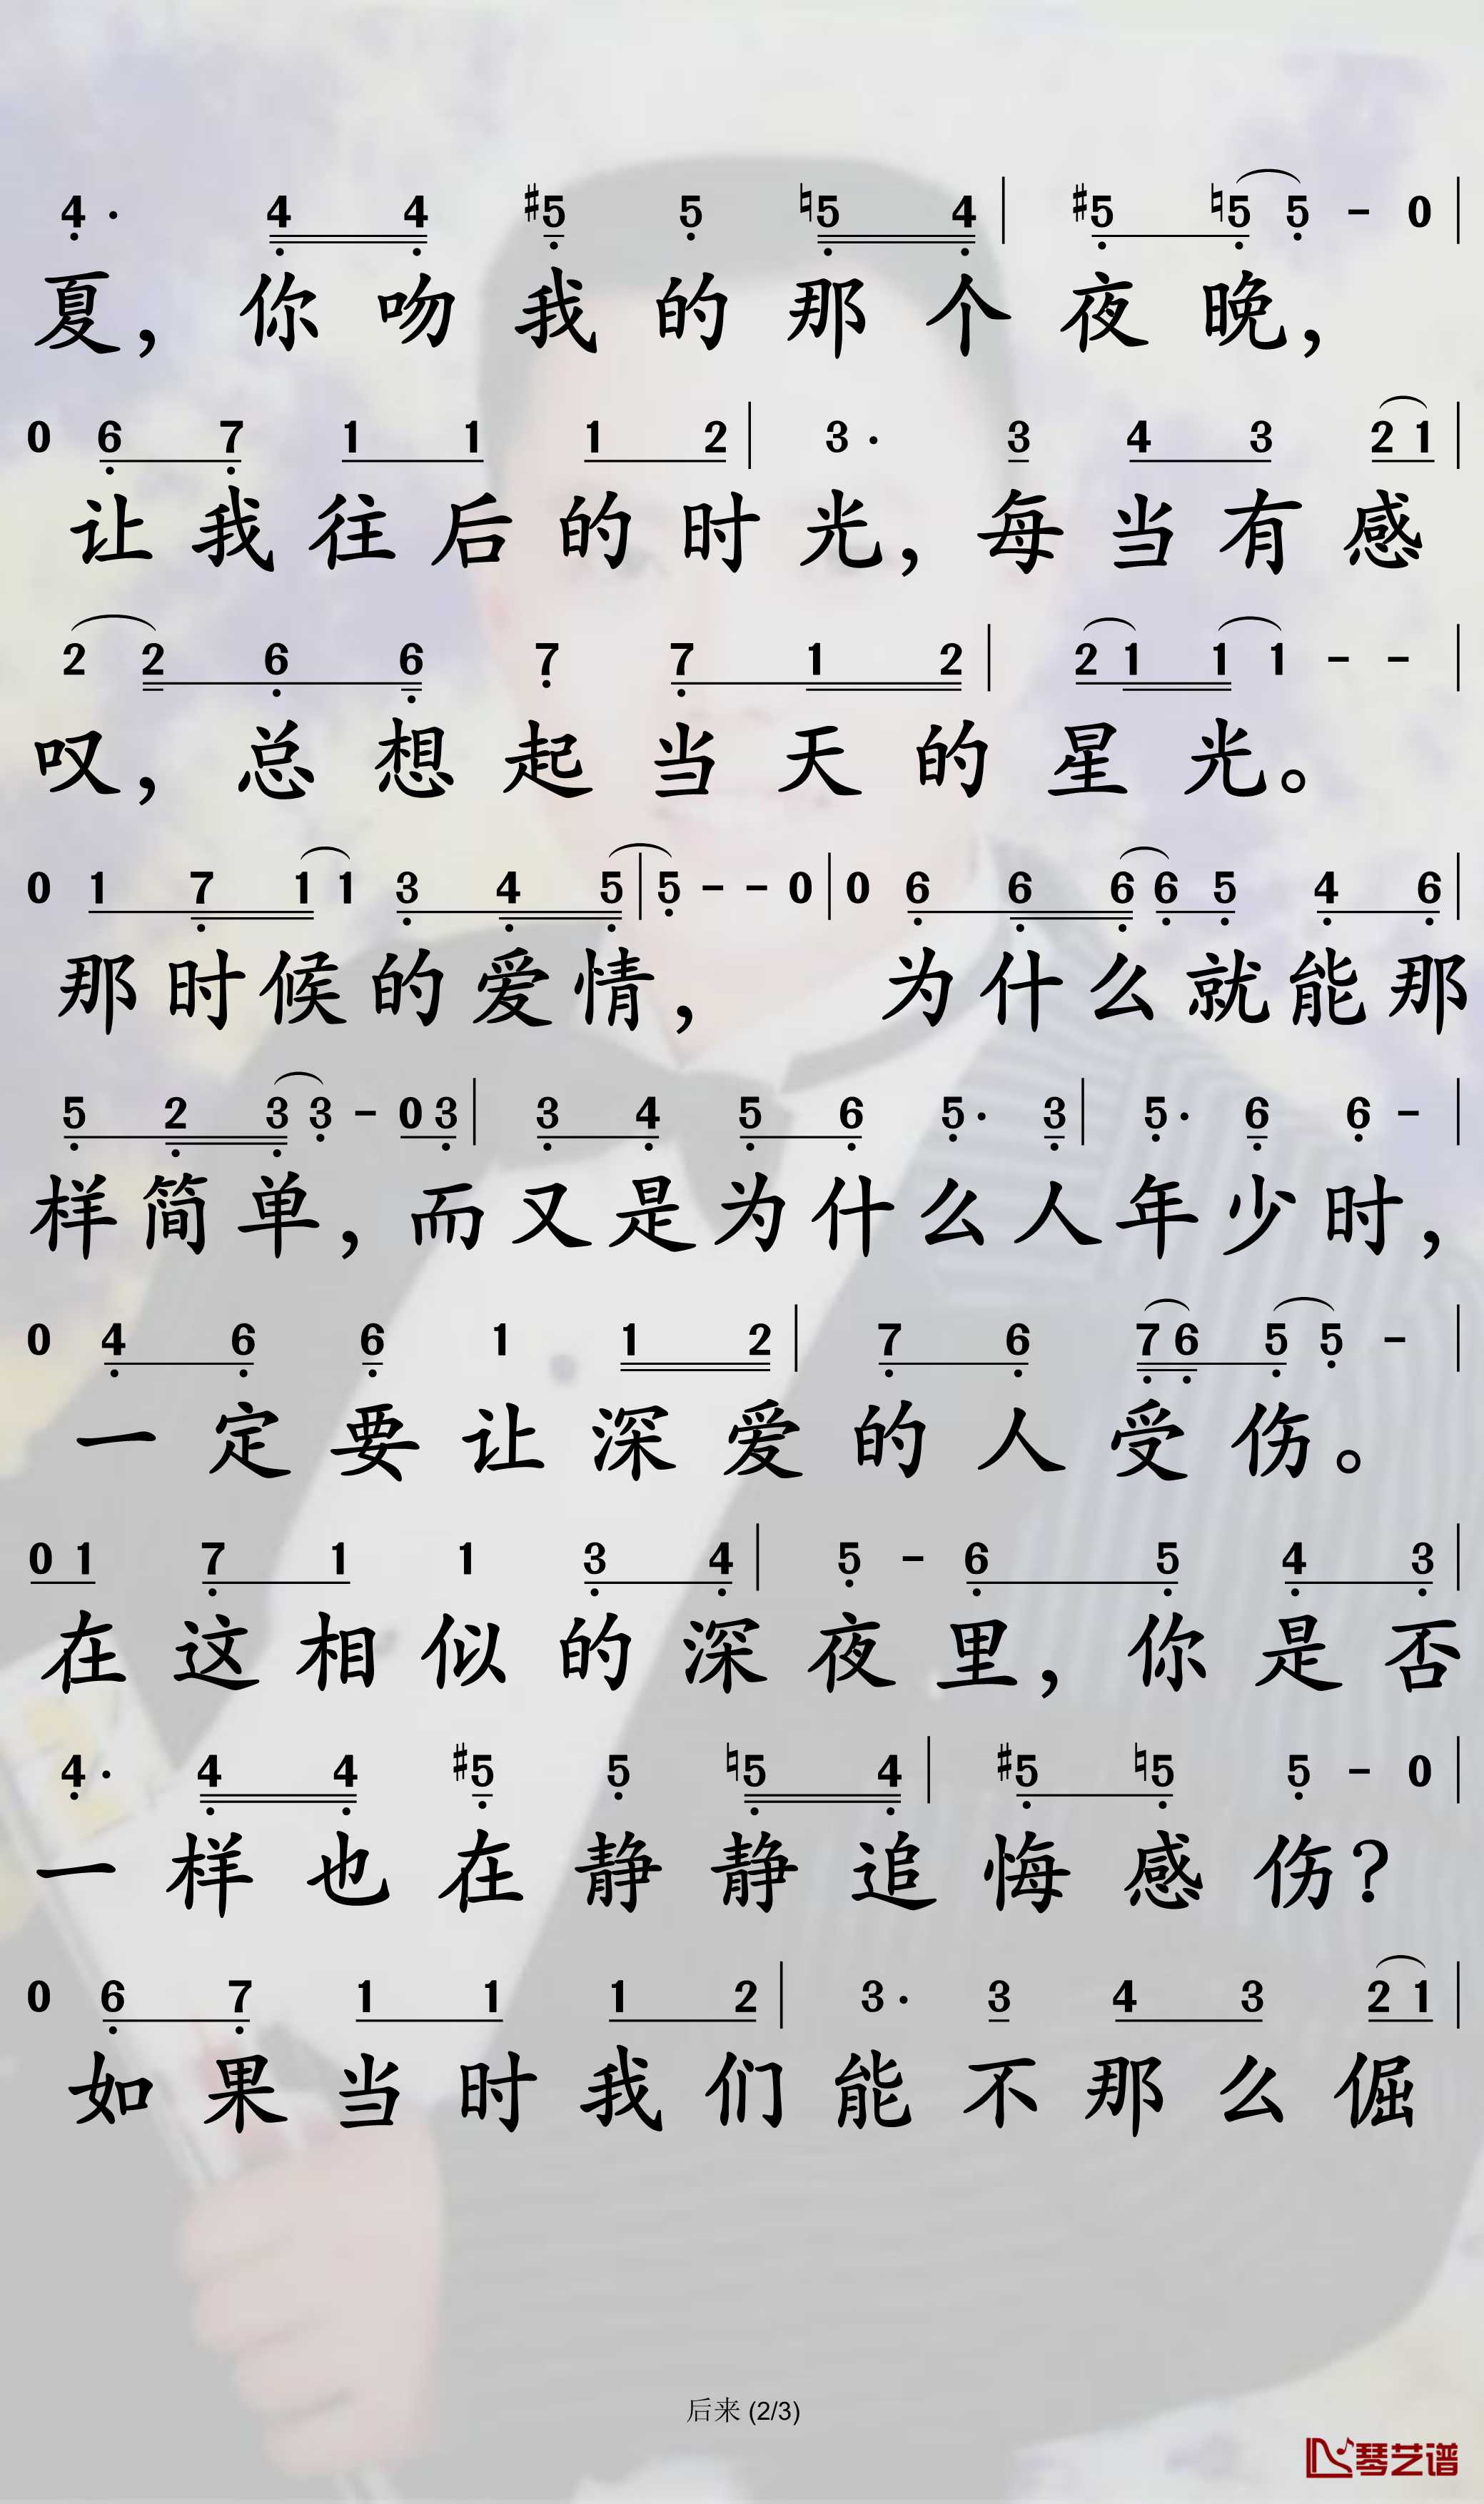 4· 4 4 #5 5 ♮5 4 | #5 ♮5 5 - 0 |
夏，你吻我的那个夜晚，
0 6 7 1 1 1 2 | 3· 3 4 3 2 1 |
让我往后的时光，每当有感
2 2 6 6 7 7 1 2 | 2 1 1 1 - - |
叹，总想起当天的星光。
0 1 7 1 1 3 4 5 | 5 - - 0 | 0 6 6 6 6 5 4 6 |
那时候的爱情，为什么就能那
5 2 3 3 - 0 3 | 3 4 5 6 5· 3 | 5· 6 6 - |
样简单，而又是为什么人年少时，
0 4 6 6 1 1 2 | 7 6 7 6 5 5 - |
一定要让深爱的人受伤。
0 1 7 1 1 3 4 | 5 - 6 5 4 3 |
在这相似的深夜里，你是否
4· 4 4 #5 5 ♮5 4 | #5 ♮5 5 - 0 |
一样也在静静追悔感伤？
0 6 7 1 1 1 2 | 3· 3 4 3 2 1 |
如果当时我们能不那么倔
后来 (2/3)
琴艺谱